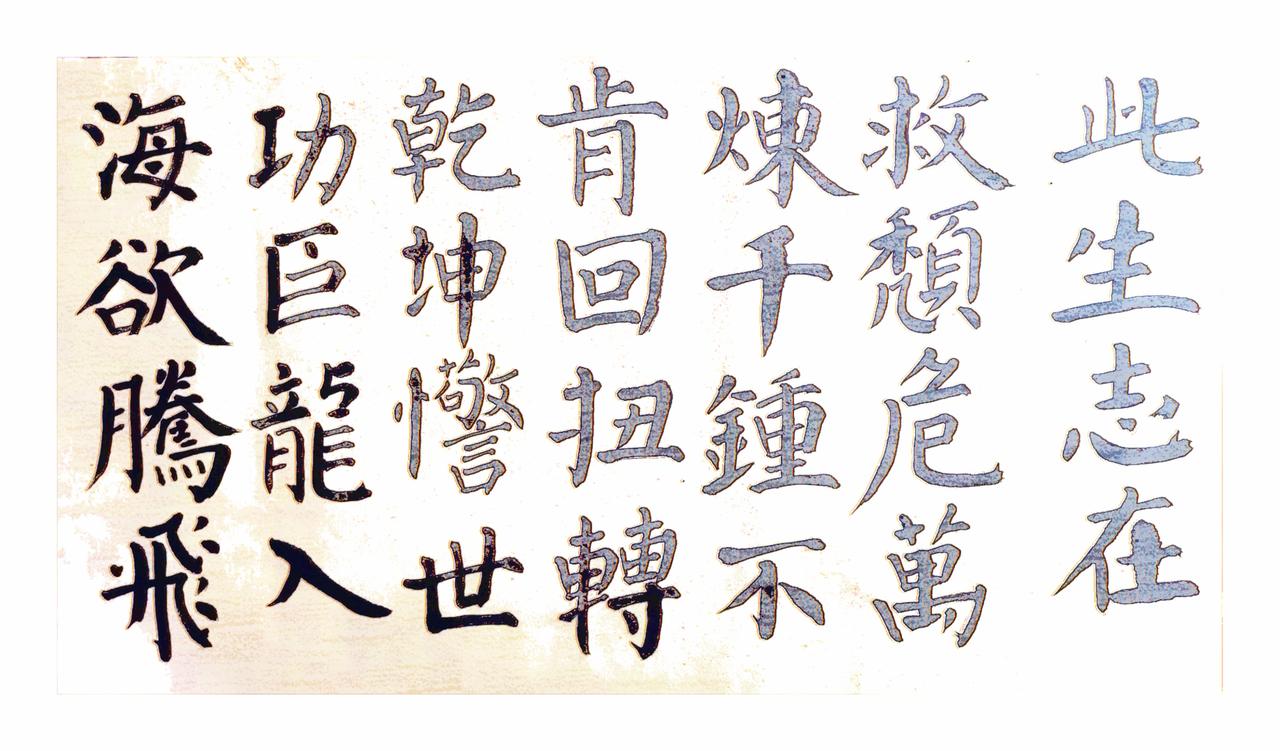 此生志在
救頹危萬
煉千鍾不
肯回扭轉
乾坤世
功巨龍入
海欲騰飛